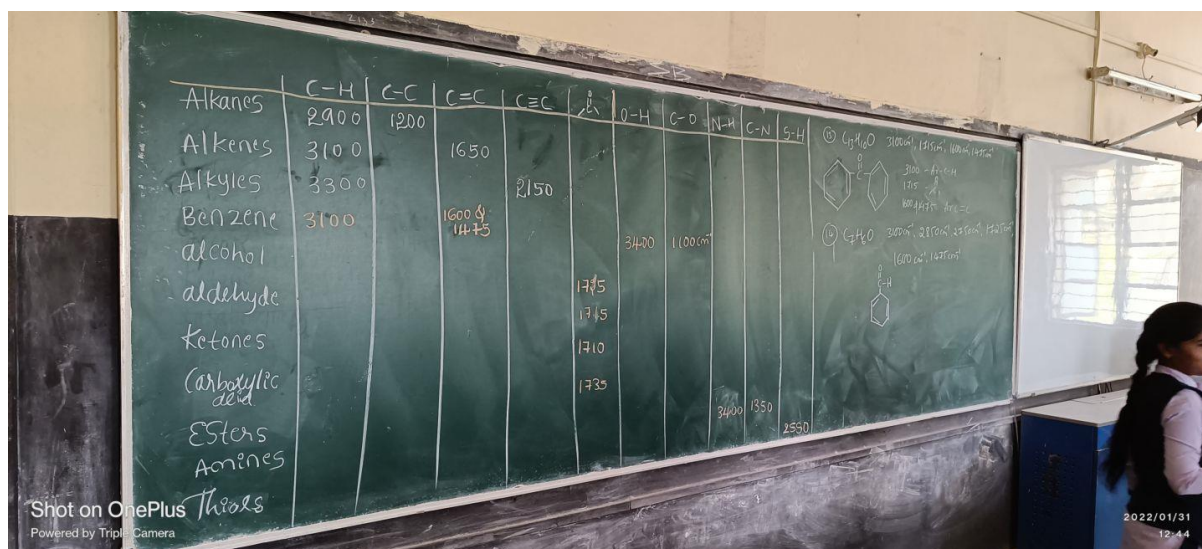 C-H C-C C=C C≡C O-H C-O N-H C-N S-H
Alkanes 2900 1200
Alkenes 3100 1650
Alkyles 3300 2150
Benzene 3100 1600 & 1475
alcohol 3400 1100cm⁻¹
aldehyde
1715
Ketones 1710
Carboxylic acid 1735
Esters 3400 1350
Amines 2550
Thiols
13 C13H10O 3100cm⁻¹, 1715cm⁻¹, 1600cm⁻¹, 1475cm⁻¹
O
C
3100 - Ar-C-H
1715 -
14 C7H6O 3100cm⁻¹, 2850cm⁻¹, 2750cm⁻¹, 1725cm⁻¹,
1600cm⁻¹, 1475cm⁻¹
O
C-H
Shot on OnePlus
Powered by Triple Camera
2022/01/31
12:44